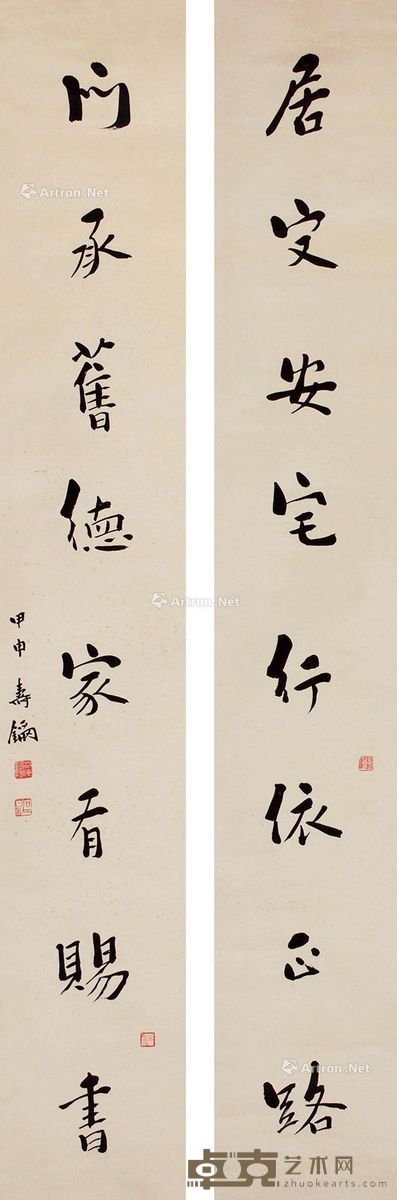 居定安宅行依正路
門承舊德家有賜書
甲申 壽鏞
Artron.Net
Artron.Net
Artron.Net
卓克艺术网
zhuokearts.com